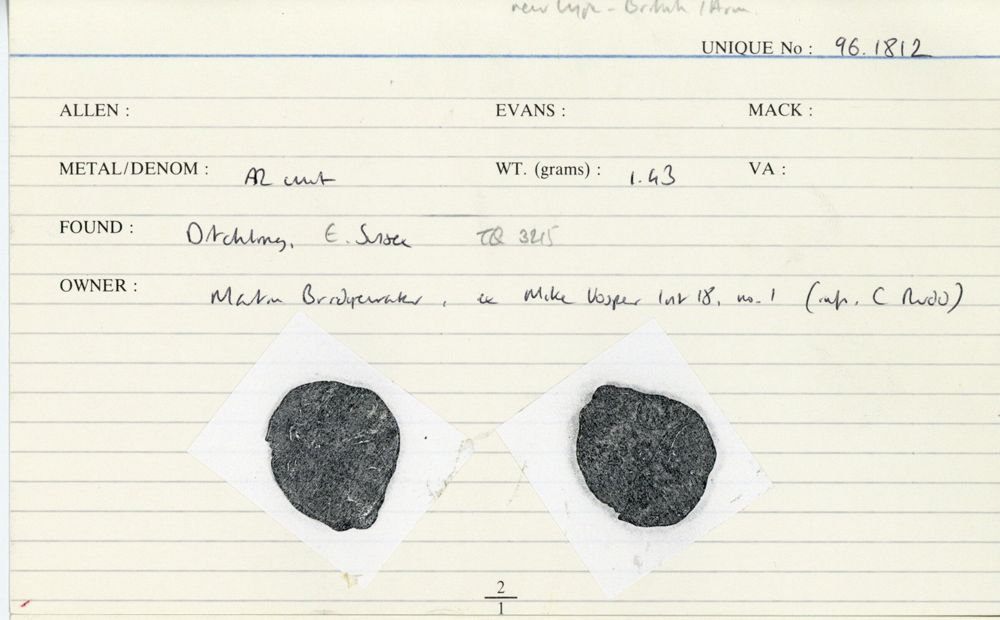 new type - British / Arm.
UNIQUE No : 96.1812
ALLEN : EVANS : MACK :
METAL/DENOM : AR unit WT. (grams) : 1.43 VA :
FOUND : Ditchling, E. Sussex TQ 3215
OWNER : Martin Bridgewater, ex Mike Vosper list 18, no. 1 (inf. C Rudd)
2
1